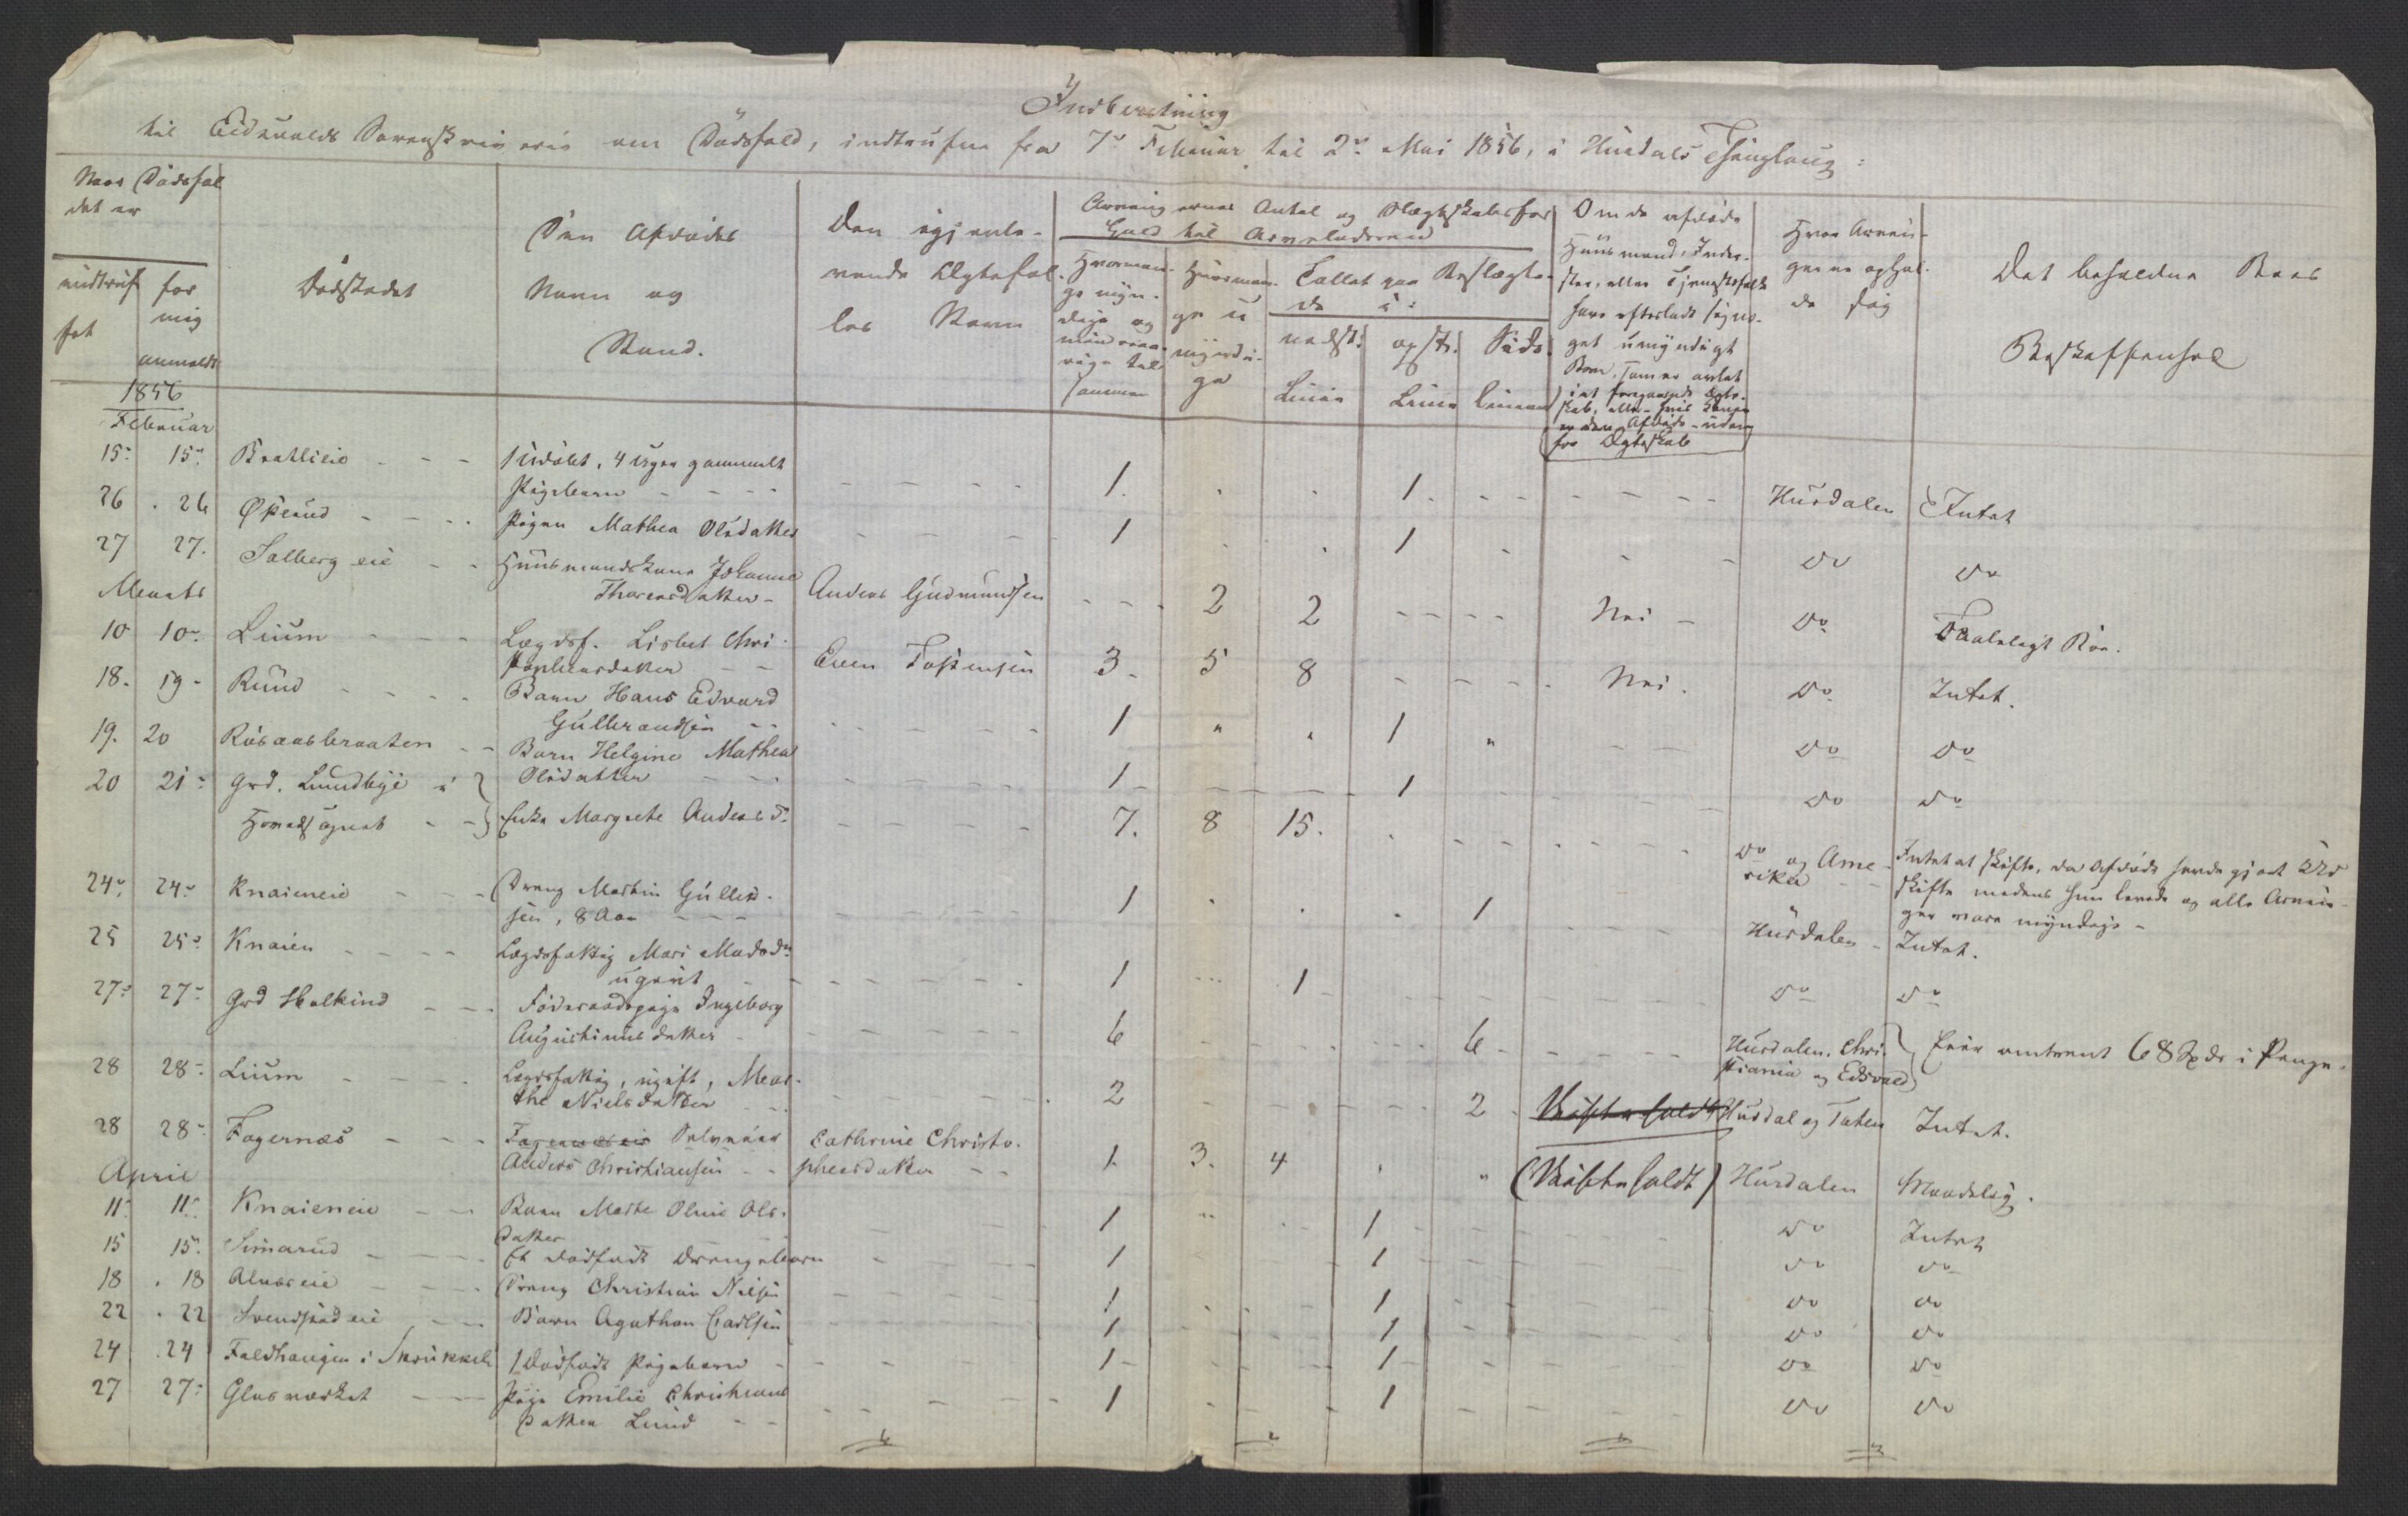 Indberetning
til Eidsvolds Sorenskriveri om Dødsfald, indtrufne fra 7de Februar til 2den Mai 1856, i Hurdals Thinglaug:
Naar Dødsfaldet er
indtruffet
for mig anmeldt
Dødstedet
Den Afdødes Navn og Stand.
Den igjenlevende Ægtefælles Navn
Arvingernes Antal og Slægtskabsforhold til Arveladeren
Hvormange myndige og mindreaarige tilsammen
Hvormange umyndige
Tallet paa Beslægtede i:
nedst. Linie
opst. Linie
Side Linien
Om de afdøde Huusmænd, Inderster, eller Tjenestefolk have efterladt sig noget umyndigt Barn, som er avlet i et foregaaende Ægteskab, eller hvis Konen er den Afdøde uden for Ægteskab
Hvor Arvingerne opholde sig
Det befundne Boes Beskaffenhed
1856
Februar
15 15 Bratlieie - - - 1 udøbt, 4 Uger gammelt Pigebarn - - - 1. . . 1. - - - Hurdalen Intet
26 . 26 Øperud - - - Pigen Mathea Olsdatter - - - 1 . . 1 - - - do do
27 27. Solberg eie - - Huusmandskone Johanne Thoresdatter - Anders Gudmundsen - - - 2 2 - - - Nei - do Ubetaleligt Boe.
Marts
10 10 Lium - - - Lægdsf. Lisbet Christophersdatter - - Even Tostensen 3 - 5 8 - - - Nei. do Intet.
18. 19 - Ruud - - - Barn Hans Edvard Gulbrandsen - - - 1 " " 1 " - - do do
19. 20 Rusaasbraaten - - Barn Helgine Mathea Olsdatter - - - 1 - - - 1 - - do do
20 21 Grd. Lundbye i Hovedsognet - - Enke Margrethe Andersd. - - - 7. 8 15. . - - - do og Amerika - - Intet at skifte, da Afdøde havde gjort Udskifte medens hun levede og alle Arvinger vare myndige -
24 24 Knaieneie - - - Dreng Martin Gulliksen, 8 Aar - - - 1 . . . 1 - - - Hurdalen - Intet.
25 25 Knaien - - - Lægdsfattig Mari Madsdr. ugivt - - - 1 ... 1 - - - do do
27 27 Grd Halkind - - - Føderaadspige Ingeborg Augustinusdatter - - - 6 - - - 6 - - - Hurdalen, Christiania og Edsvold Eier omtrent 68 Spdr i Penge.
28 28 Lium - - - Lægdsfattig, ugift, Marthe Nielsdatter - - - 2 - - - 2 - Hurdal og Toten Intet.
28 28 Fagernæs - - - Selveier Anders Christiansen - - Cathrine Christophersdatter - - 1 3. 4 . " (Skiftefaldt) Hurdalen Maadelig.
April
11 11 Knaieneie - - Barn Marthe Oline Olsdatter - - - 1 " . - 1 - - - do Intet
15 15. Simarud - - - Et dødfødt Drengebarn - - - 1 - - - 1 - - - do do
18 . 18 Alnæseie - - - Dreng Christian Nilsen - - - 1 . . - 1 - - - do do
22 . 22 Svendstad eie - - Barn Agathon Carlsen - - - 1 - - - 1 - - - do do
24 .24 Faldhaugen i Skrukkeli 1 Dødfødt Pigebarn - - - 1 - - - 1 - - - do do
27 27 Glasværket - - - Pige Emilie Christiansdatter Lund - - - 1 - - - 1 - - - do do